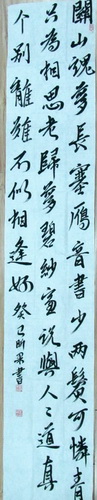 關山魂夢長塞鴈音書少兩鬢可憐青
只為相思老歸夢碧紗窗説與人人道真
个別離難不似相逢好癸巳書